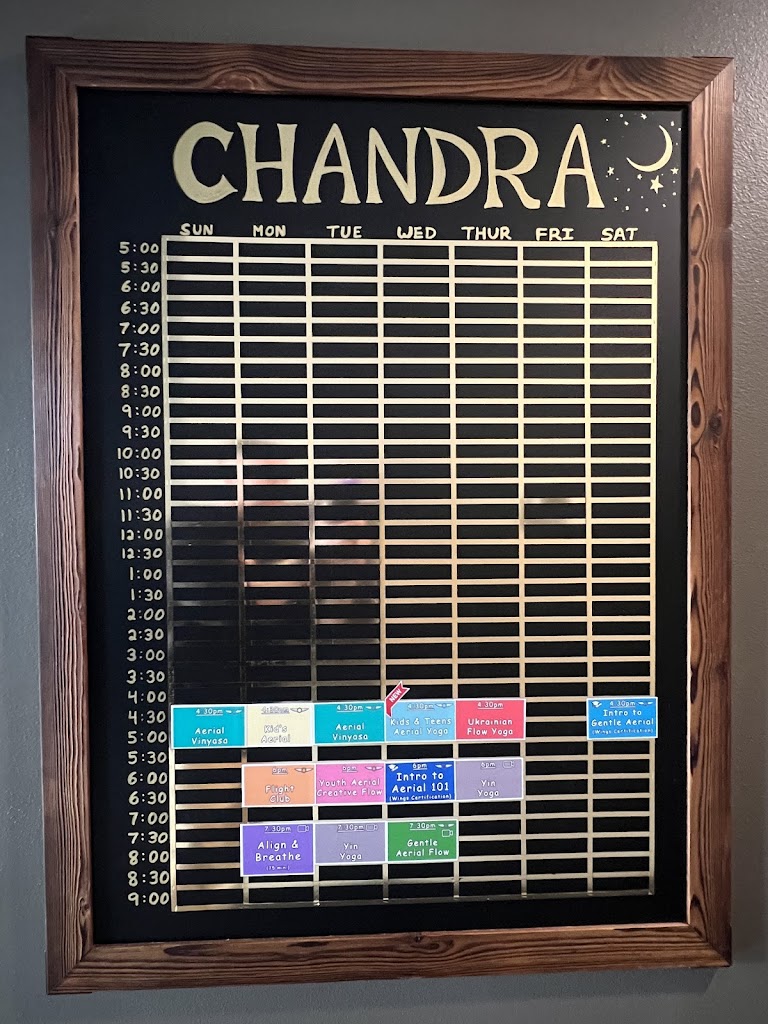 CHANDRA
SUN MON TUE WED THUR FRI SAT
5:00
5:30
6:00
6:30
7:00
7:30
8:00
8:30
9:00
9:30
10:00
10:30
11:00
11:30
12:00
12:30
1:00
1:30
2:00
2:30
3:00
3:30
4:00
4:30
5:00
5:30
6:00
6:30
7:00
7:30
8:00
8:30
9:00
4:30pm
Aerial
Vinyasa
4:30pm
Kid's
Aerial
4:30pm
Aerial
Vinyasa
NEW
4:30pm
Kids & Teens
Aerial Yoga
4:30pm
Ukrainian
Flow Yoga
4:30pm
Intro to
Gentle Aerial
(Wings Certification)
6pm
Flight
Club
6pm
Youth Aerial
Creative Flow
6pm
Intro to
Aerial 101
(Wings Certification)
6pm
Yin
Yoga
7:30pm
Align &
Breathe
7:30pm
Yin
Yoga
7:30pm
Gentle
Aerial Flow